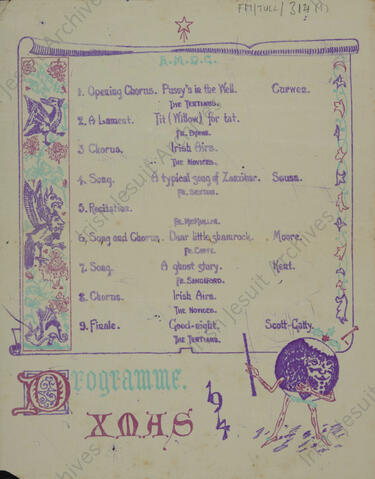 FM/TULL/314(1)
A.M.D.G.
1. Opening Chorus. Pussy's in the Well. Curwen.
The Tertians.
2. A Lament. Tit (Willow) for tat.
3 Chorus. Irish Airs.
The Novices.
4. Song. A typical song of Zanzibar. Sousa.
Fr. Sexton.
5. Recitation.
Fr. McMullen.
6. Song and Chorus. Dear little shamrock. Moore.
7. Song. A ghost story. Kent.
8. Chorus. Irish Airs.
The Novices.
9. Finale. Good-night. Scott-Gatty.
The Tertians.
Programme.
XMAS
Irish Jesuit Archives